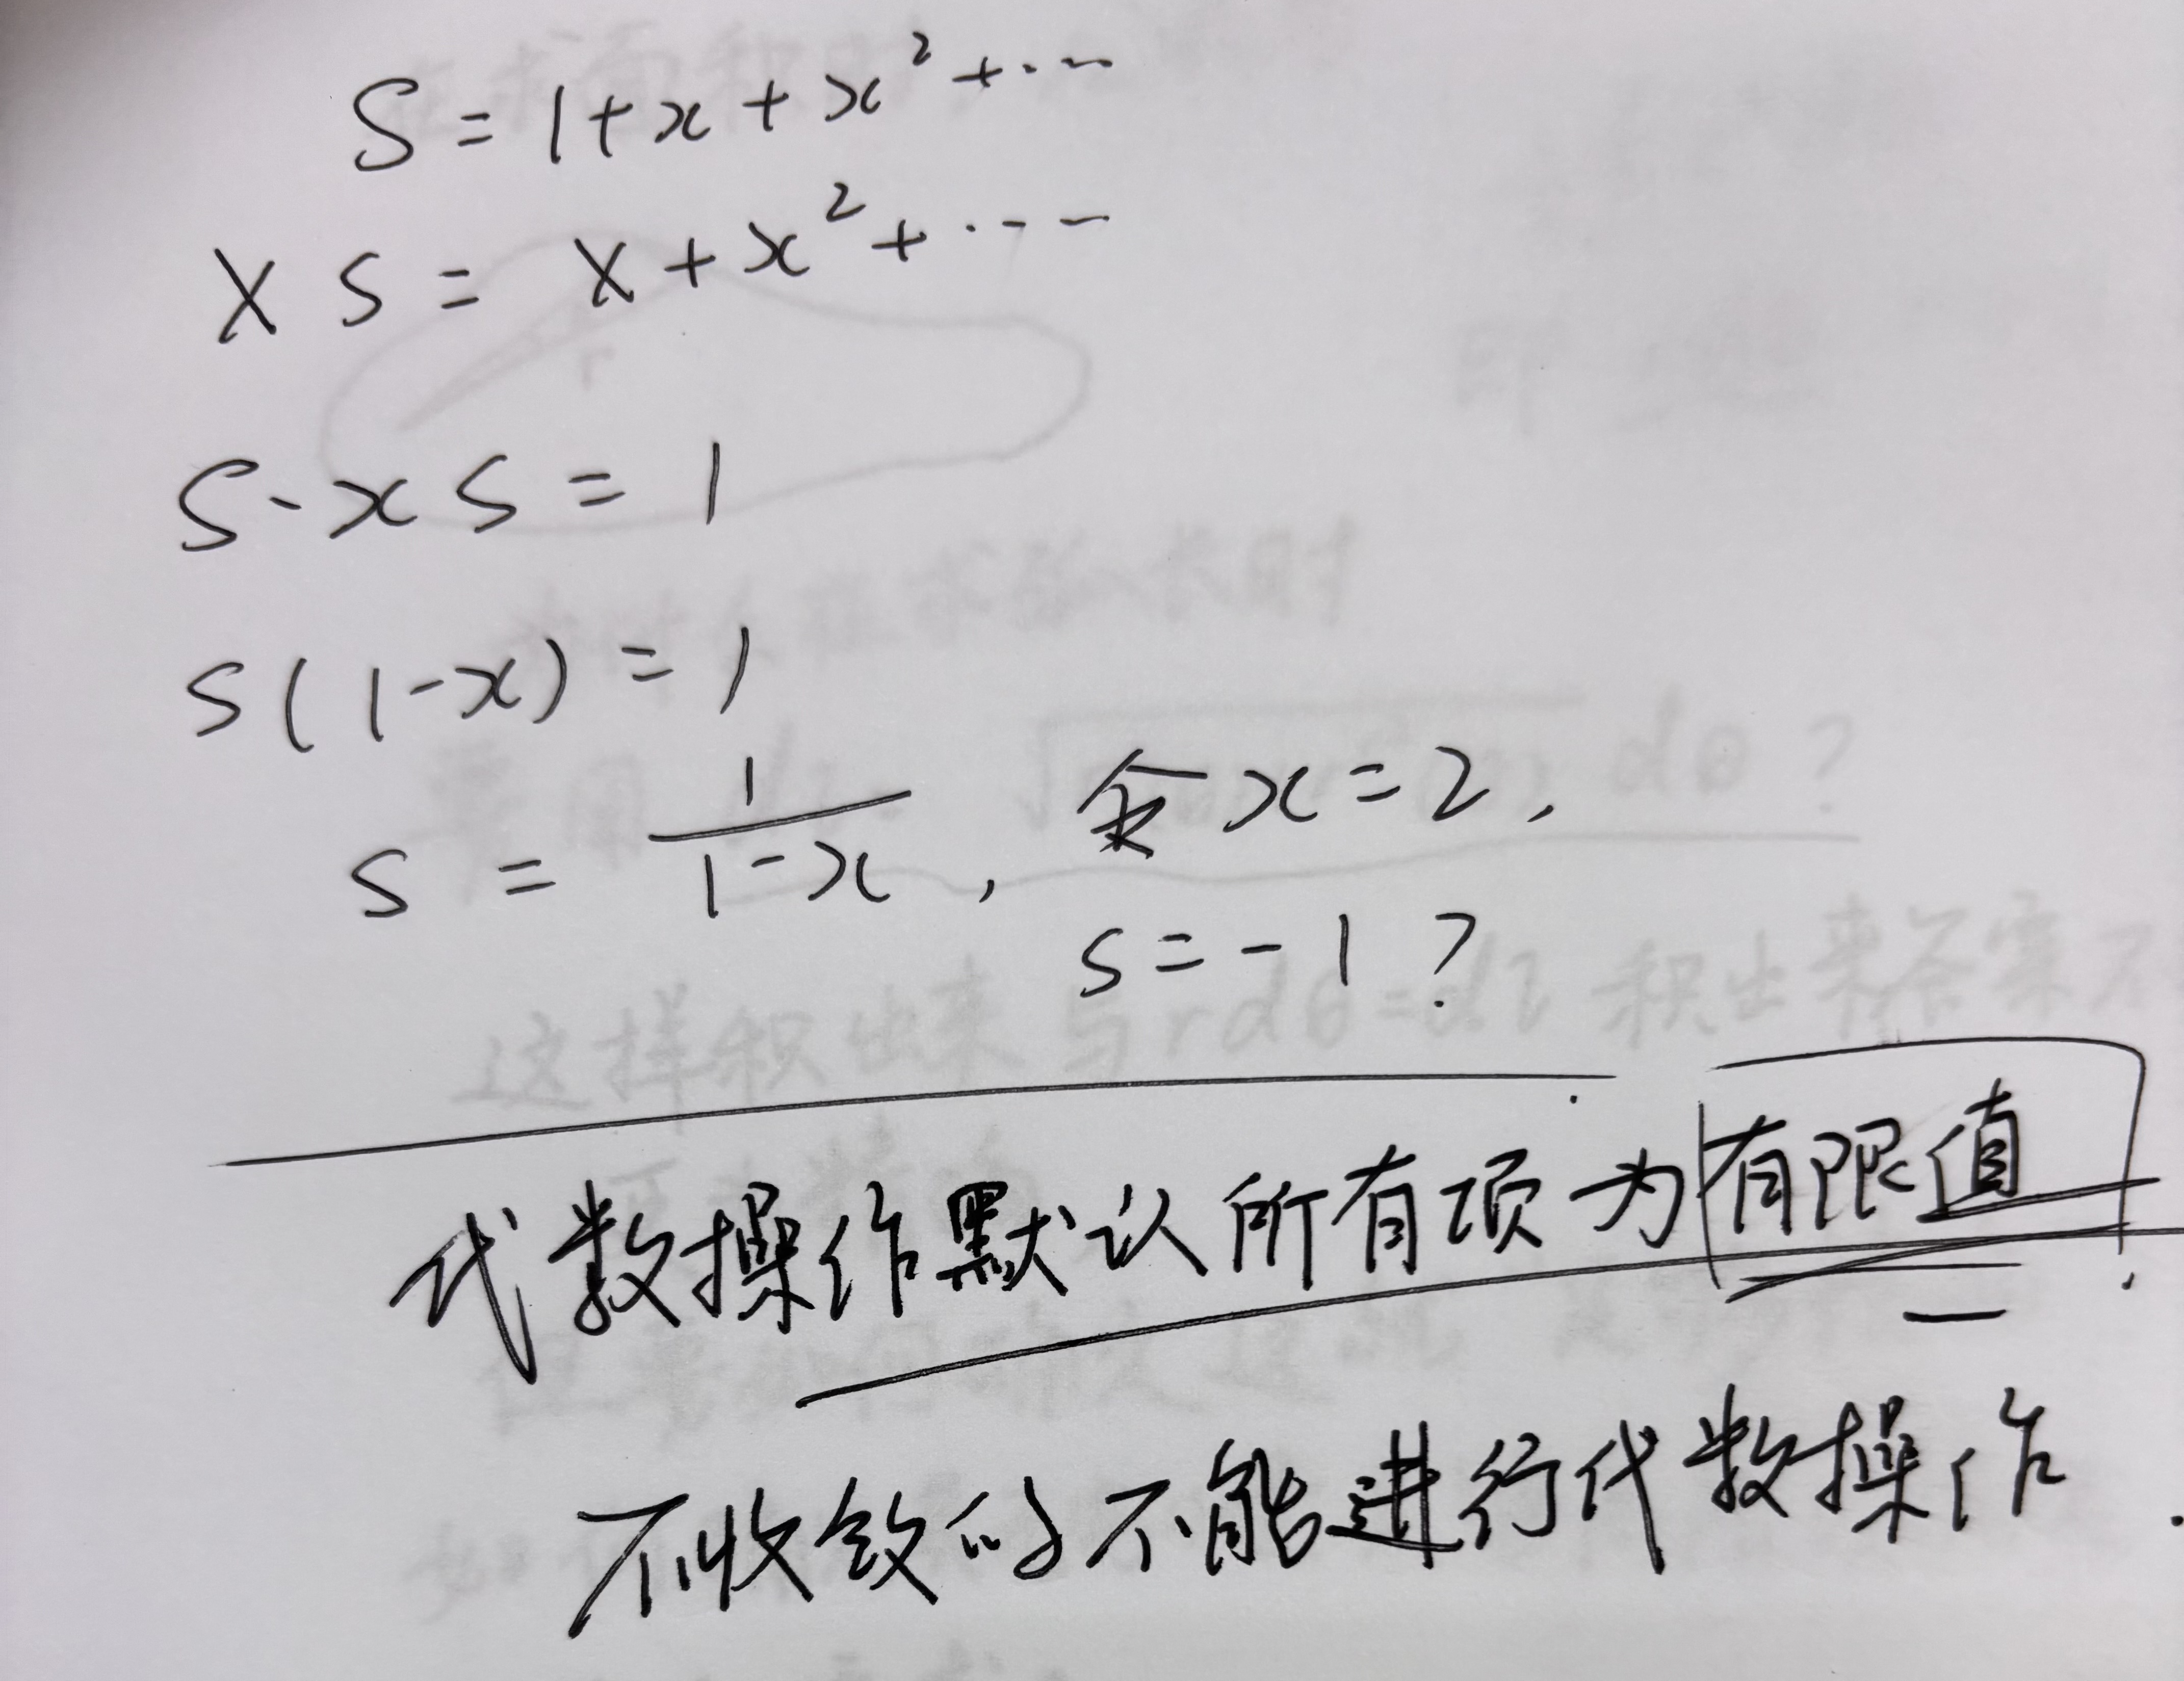 S = 1 + x + x² + ...
x S = x + x² + ...
S - x S = 1
S ( 1 - x ) = 1
S = 1/(1-x) , 令 x = 2 ,
S = - 1 ?
代数操作默认所有项为有限值.
不收敛的不能进行代数操作.